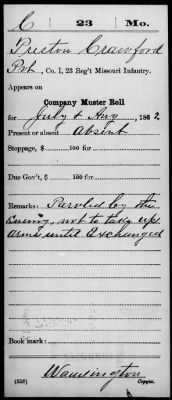 C 23 Mo.
Preston Crawford
Pvt., Co. I, 23 Reg't Missouri Infantry.
Appears on
Company Muster Roll
for July & Aug, 1862
Present or absent Absent
Stoppage, $ 100 for
Due Gov't, $ 100 for
Remarks: Paroled by the
Enemy, not to take up
arms until Exchanged
Book mark:
(358) Copyist.